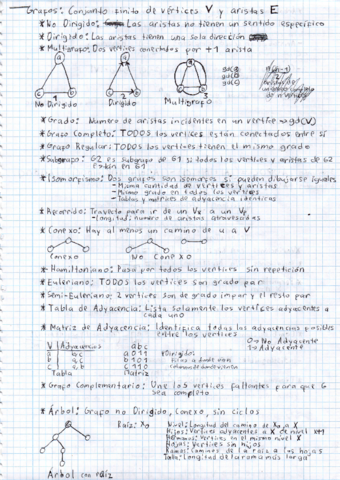 Grafos: Conjunto finito de vértices V y aristas E
* No Dirigido: Las aristas no tienen un sentido específico
* Dirigido: Las aristas tienen una sola dirección
* Multigrafo: Dos vertices conectados por +1 arista
No Dirigido Dirigido Multigrafo
* Grado: Numero de aristas incidentes en un vertice → gd(V)
* Grafo Completo: TODOS los vertices están conectados entre sí
* Grafo Regular: TODOS los vertices tienen el mismo grado
* Subgrafo: G2 es subgrafo de G1 si todos los vertices y aristas de G2
están en G1
* Isomorfismo: Dos grafos son isomorfos si pueden dibujarse iguales
- Misma cantidad de vertices y aristas
- Mismo grado en todos los vertices
- Tablas y matrices de adyacencia identicas
* Recorrido: Trayecto para ir de un
- Longitud: numero de aristas atravesadas
* Conexo: Hay al menos un camino de u a V
Conexo No Conexo
* Hamiltoniano: Pasa por todos los vertices sin repetición
* Euleriano: TODOS los vertices son grado par
* Semi-Euleriano: 2 vertices son de grado impar y el resto par
* Tabla de Adyacencia: Lista solamente los vertices adyacentes a
cada uno
* Matriz de Adyacencia: Identifica todas las adyacencias posibles
entre los vertices
0 → No Adyacente
1 → Adyacente
V Adyacencias a b c
a b,c a 0 1 1
b a,c b 1 0 1
c a,b c 1 1 0
Tabla Matriz
* Grafo Complementario: Une los vertices faltantes para que G
sea completo
* Árbol: Grafo no Dirigido, Conexo, sin ciclos
Raíz: X0
Nivel: Longitud del camino de X0 a X
Hijos: Vertices adyacentes a X de nivel x+1
Hermanos: Vertices en el mismo nivel X
Hojas: Vertices sin hijos
Ramas: Camino de la raíz a las hojas
Talla: Longitud de la rama más larga
Árbol con raíz